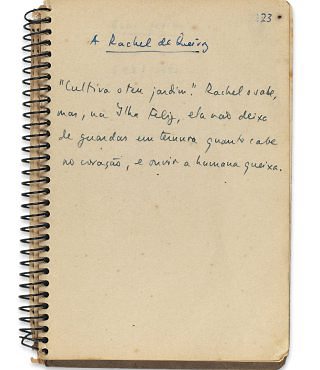 23
A Rachel de Queiroz
"Cultiva o teu jardim". Rachel o sabe,
mas, na Ilha Feliz, ela não deixa
de guardar em ternura quanto cabe
no coração, e ouvir a humana queixa.